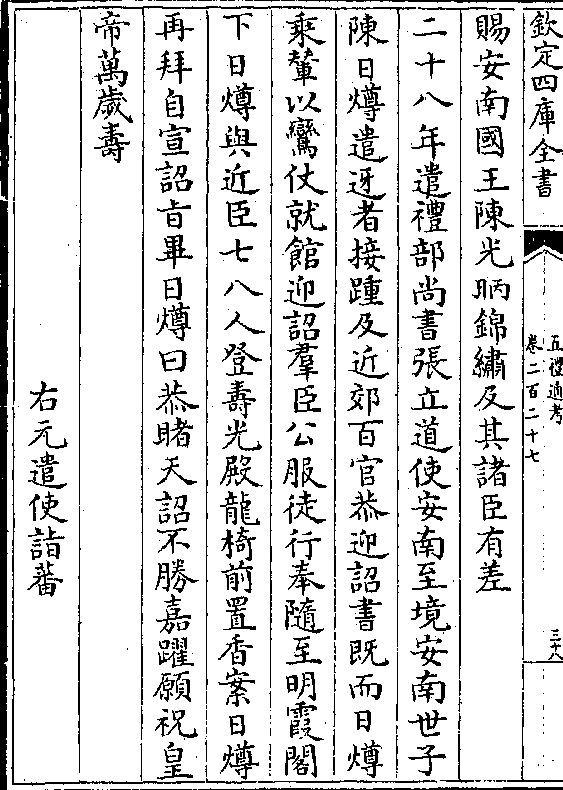 欽定四庫全書
五禮通考
卷二百二十七
三十八
賜安南國王陳光昞錦繡及其諸臣有差
二十八年遣禮部尚書張立道使安南至境安南世子
陳日燇遣迓者接踵及近郊百官恭迎詔書既而日燇
乘輦以鸞仗就館迎詔羣臣公服徒行奉隨至明霞閣
下日燇與近臣七八人登壽光殿龍椅前置香案日燇
再拜自宣詔旨畢日燇曰恭睹天詔不勝嘉躍願祝皇
帝萬歲壽
右元遣使詣蕃